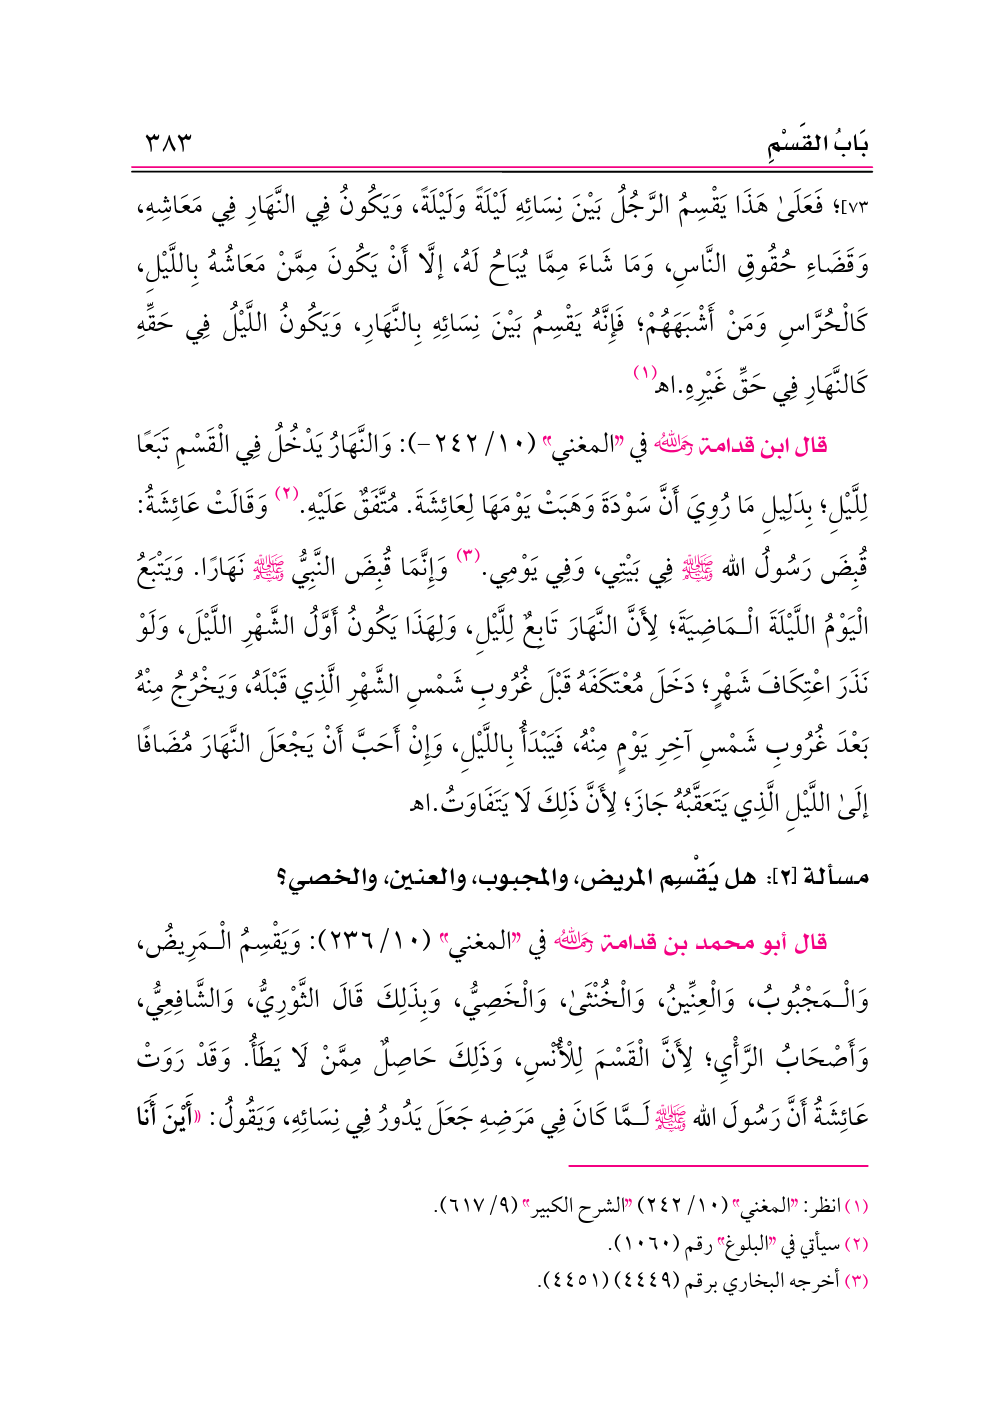 بَابُ القَسْمِ ٣٨٣
٧٣]؛ فَعَلَىٰ هَذَا يَقْسِمُ الرَّجُلُ بَيْنَ نِسَائِهِ لَيْلَةً وَلَيْلَةً، وَيَكُونُ فِي النَّهَارِ فِي مَعَاشِهِ،
وَقَضَاءِ حُقُوقِ النَّاسِ، وَمَا شَاءَ مِمَّا يُبَاحُ لَهُ، إلَّا أَنْ يَكُونَ مِمَّنْ مَعَاشُهُ بِاللَّيْلِ،
كَالْحُرَّاسِ وَمَنْ أَشْبَهَهُمْ؛ فَإِنَّهُ يَقْسِمُ بَيْنَ نِسَائِهِ بِالنَّهَارِ، وَيَكُونُ اللَّيْلُ فِي حَقِّهِ
كَالنَّهَارِ فِي حَقِّ غَيْرِهِ.اﻫ(١)
قال ابن قدامة رحمه الله في "المغني" (١٠/ ٢٤٢-): وَالنَّهَارُ يَدْخُلُ فِي الْقَسْمِ تَبَعًا
لِلَّيْلِ؛ بِدَلِيلِ مَا رُوِيَ أَنَّ سَوْدَةَ وَهَبَتْ يَوْمَهَا لِعَائِشَةَ. مُتَّفَقٌ عَلَيْهِ.(٢) وَقَالَتْ عَائِشَةُ:
قُبِضَ رَسُولُ الله ﷺ فِي بَيْتِي، وَفِي يَوْمِي.(٣) وَإِنَّمَا قُبِضَ النَّبِيُّ ﷺ نَهَارًا. وَيَتْبَعُ
الْيَوْمُ اللَّيْلَةَ الْـمَاضِيَةَ؛ لِأَنَّ النَّهَارَ تَابِعٌ لِلَّيْلِ، وَلِهَذَا يَكُونُ أَوَّلُ الشَّهْرِ اللَّيْلَ، وَلَوْ
نَذَرَ اعْتِكَافَ شَهْرٍ؛ دَخَلَ مُعْتَكَفَهُ قَبْلَ غُرُوبِ شَمْسِ الشَّهْرِ الَّذِي قَبْلَهُ، وَيَخْرُجُ مِنْهُ
بَعْدَ غُرُوبِ شَمْسِ آخِرِ يَوْمٍ مِنْهُ، فَيَبْدَأُ بِاللَّيْلِ، وَإِنْ أَحَبَّ أَنْ يَجْعَلَ النَّهَارَ مُضَافًا
إلَىٰ اللَّيْلِ الَّذِي يَتَعَقَّبُهُ جَازَ؛ لِأَنَّ ذَلِكَ لَا يَتَفَاوَتُ.اﻫ
مسألة [٢]: هل يَقْسِم المريض، والمجبوب، والعنين، والخصي؟
قال أبو محمد بن قدامة رحمه الله في "المغني" (١٠/ ٢٣٦): وَيَقْسِمُ الْـمَرِيضُ،
وَالْـمَجْبُوبُ، وَالْعِنِّينُ، وَالْخُنْثَىٰ، وَالْخَصِيُّ، وَبِذَلِكَ قَالَ الثَّوْرِيُّ، وَالشَّافِعِيُّ،
وَأَصْحَابُ الرَّأْيِ؛ لِأَنَّ الْقَسْمَ لِلْأُنْسِ، وَذَلِكَ حَاصِلٌ مِمَّنْ لَا يَطَأُ. وَقَدْ رَوَتْ
عَائِشَةُ أَنَّ رَسُولَ الله ﷺ لَـمَّا كَانَ فِي مَرَضِهِ جَعَلَ يَدُورُ فِي نِسَائِهِ، وَيَقُولُ: «أَيْنَ أَنَا
(١) انظر: "المغني" (١٠/ ٢٤٢) "الشرح الكبير" (٩/ ٦١٧).
(٢) سيأتي في "البلوغ" رقم (١٠٦٠).
(٣) أخرجه البخاري برقم (٤٤٤٩) (٤٤٥١).